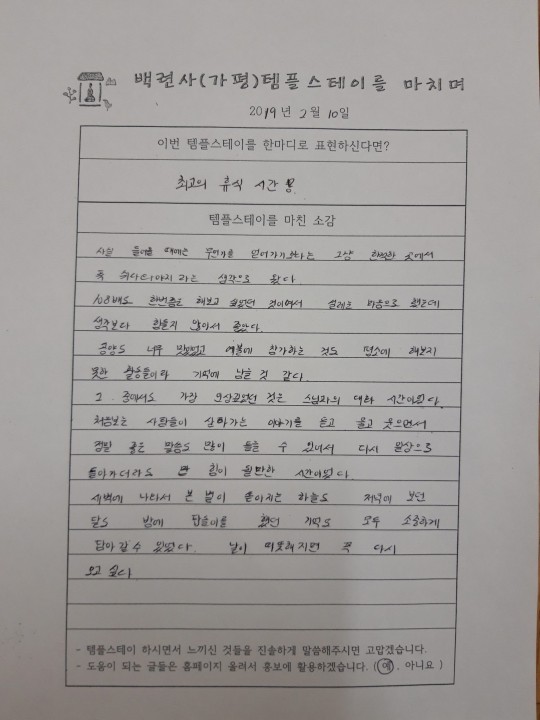 백련사(가평)템플스테이를 마치며
2019년 2월 10일
이번 템플스테이를 한마디로 표현하신다면?
최고의 휴식 시간
템플스테이를 마친 소감
사실 들어올 때에는 무언가를 얻어가기보다는 그냥 한적한 곳에서
푹 쉬다 와야지 라는 생각으로 왔다.
108배도 한번쯤은 해보고 싶었던 것이여서 설레는 마음으로 했는데
생각보다 힘들지 않아서 좋았다.
공양도 너무 맛있었고 예불에 참가하는 것도 평소에 해보지
못한 활동들이라 기억에 남을 것 같다.
그 중에서도 가장 인상깊었던 것은 스님과의 대화 시간이었다.
처음보는 사람들이 살아가는 이야기를 듣고 울고 웃으면서
정말 좋은 말씀도 많이 들을 수 있어서 다시 일상으로
돌아가더라도 힘이 될만한 시간이었다.
새벽에 나와서 본 별이 쏟아지는 하늘도 저녁에 보던
달도 밤에 탑돌이를 했던 기억도 모두 소중하게
담아갈 수 있었다. 날이 따뜻해지면 꼭 다시
오고 싶다.
- 템플스테이 하시면서 느끼신 것들을 진솔하게 말씀해주시면 고맙겠습니다.
- 도움이 되는 글들은 홈페이지 올려서 홍보에 활용하겠습니다. (예, 아니요)